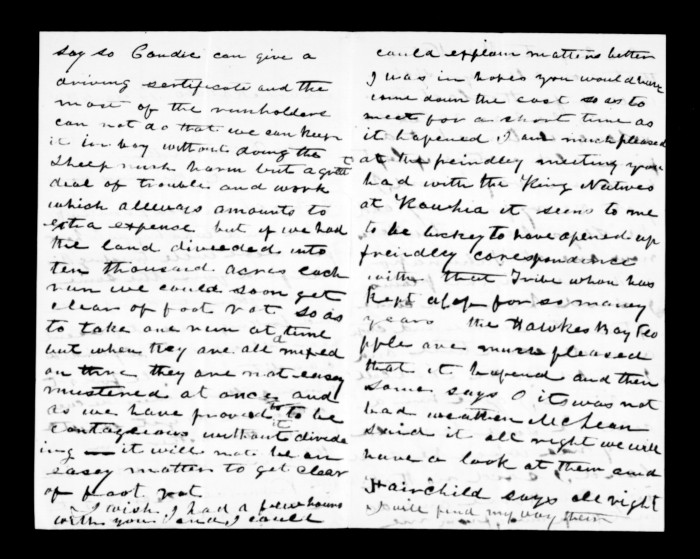 say so Condie can give a
driving sertificate and the
most of the runholders
can not do that we can keep
it in bay without doing the
Sheep much harm but a grett
deal of trouble and work
which allways amounts to
a expense but if we had
the land diveeded into
ten thousand acres each
run we could soon get
clear of foot rot so as
to take one run at a time
but when they are all mixed
on thire they are not easey
mustered at once and
as we have proved it to be
contageious without divide
ing it will not be an
easey matter to get clear
of foot rot
I wish I had a few hours
with you and I could
could explain matters better
I was in hopes you would have
come down the cost so as to
meet for a short time as
it hapened I am much pleased
at the freindley meeting you
had with the King Natives
at Kawhia it seems to me
to be luckey to have opened up
freindley corespondence
with that Tribe whom has
kept aloof for so maney
years the Hawkes Bay Peo
pple are much pleased
that it hapend and then
some says O it was not
bad weather McLean
said it all right we will
have a look at them and
Fairchild says all right
I will find my way them